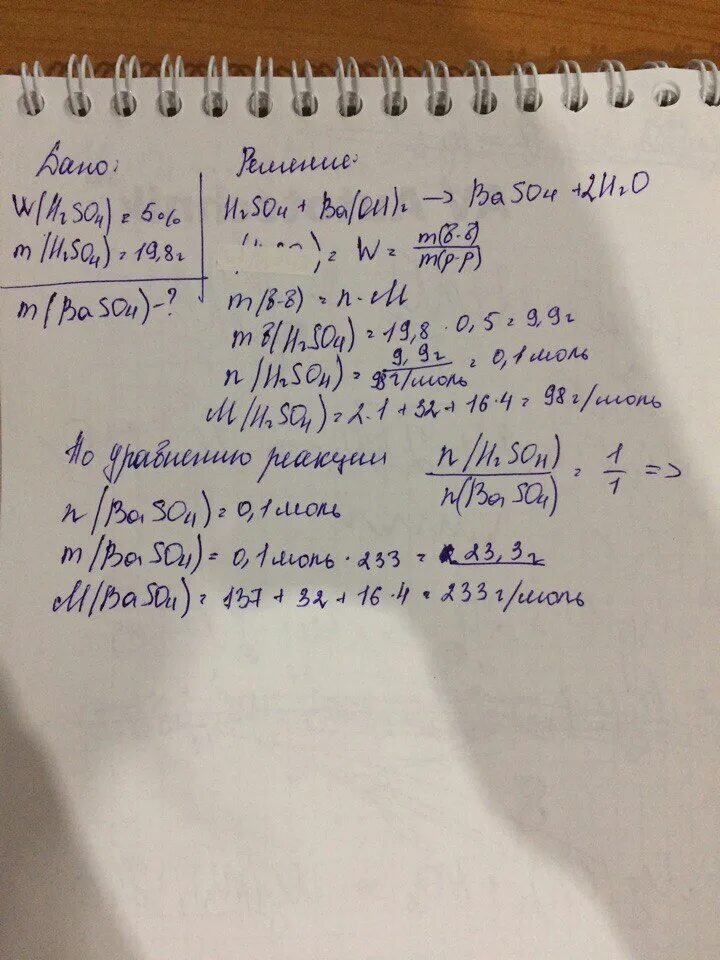 Дано:
W(H₂SO₄) = 5%
m(H₂SO₄) = 19,8г
m(BaSO₄) - ?
Решение:
H₂SO₄ + Ba(OH)₂ → BaSO₄ + 2H₂O
W = m(в-в)/m(р-р)
m(в-в) = n · M
m в(H₂SO₄) = 19,8 · 0,5 = 9,9г
n(H₂SO₄) = 9,9г/98г/моль = 0,1моль
M(H₂SO₄) = 2·1 + 32 + 16·4 = 98г/моль
По уравнению реакции n(H₂SO₄)/n(BaSO₄) = 1/1 =>
n(BaSO₄) = 0,1моль
m(BaSO₄) = 0,1моль · 233 = 23,3г
M(BaSO₄) = 137 + 32 + 16·4 = 233г/моль